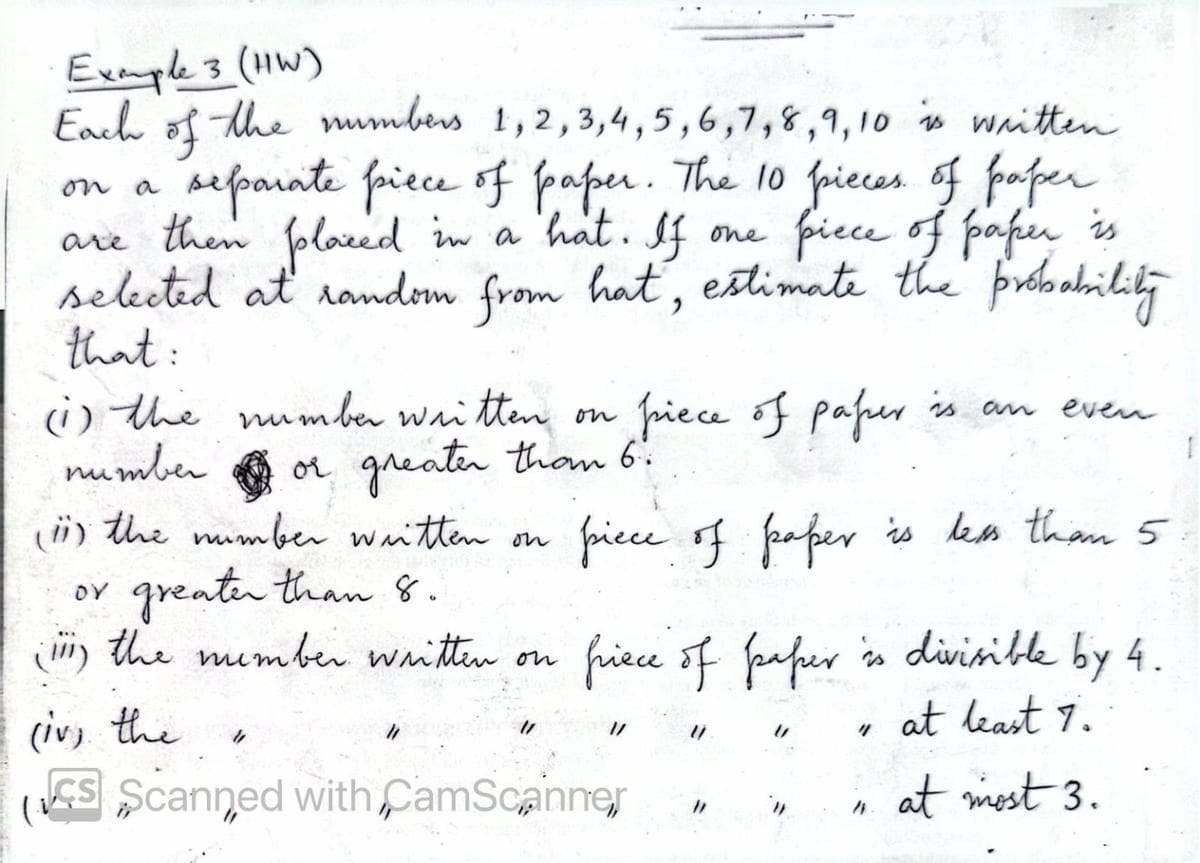 Example 3 (HW)
Each of the numbers 1, 2, 3, 4, 5, 6, 7, 8, 9, 10 is written
on a separate piece of paper. The 10 pieces of paper
are then placed in a hat. If one piece of paper is
selected at random from hat, estimate the probability
that:
(i) the number written on piece of paper is an even
number or greater than 6.
(ii) the number written on piece of paper is less than 5
or greater than 8.
(iii) the number written on piece of paper is divisible by 4.
(iv) the " " " " " " " at least 7.
(v) " " " " " " " " at most 3.
CS Scanned with CamScanner